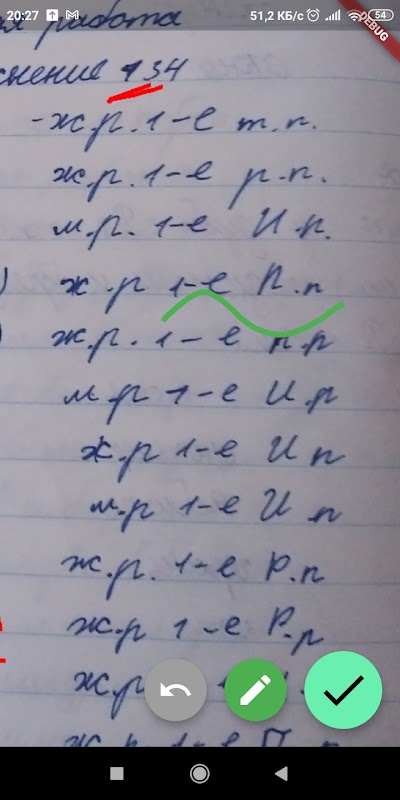 20:27 51,2 КБ/с 54
DEBUG
работа
жнение 134
-ж.р. 1-е т.п.
ж.р. 1-е р.п.
м.р. 1-е И.п.
ж.р 1-е П.п
ж.р. 1-е п.р
м.р 1-е И.р
ж.р 1-е И п
м.р 1-е И.п
ж.р. 1-е Р.п
ж.р 1-е Р.р
ж.р
ж.р 1-е П.п